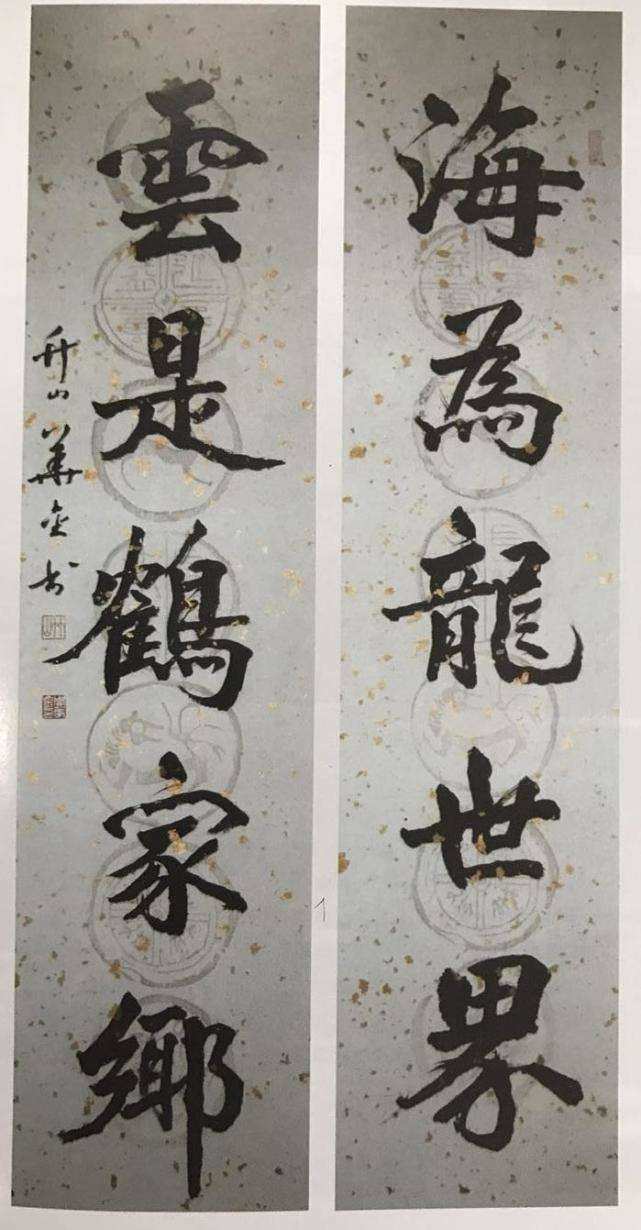 海為龍世界
雲是鶴家鄉
舟山華奎书